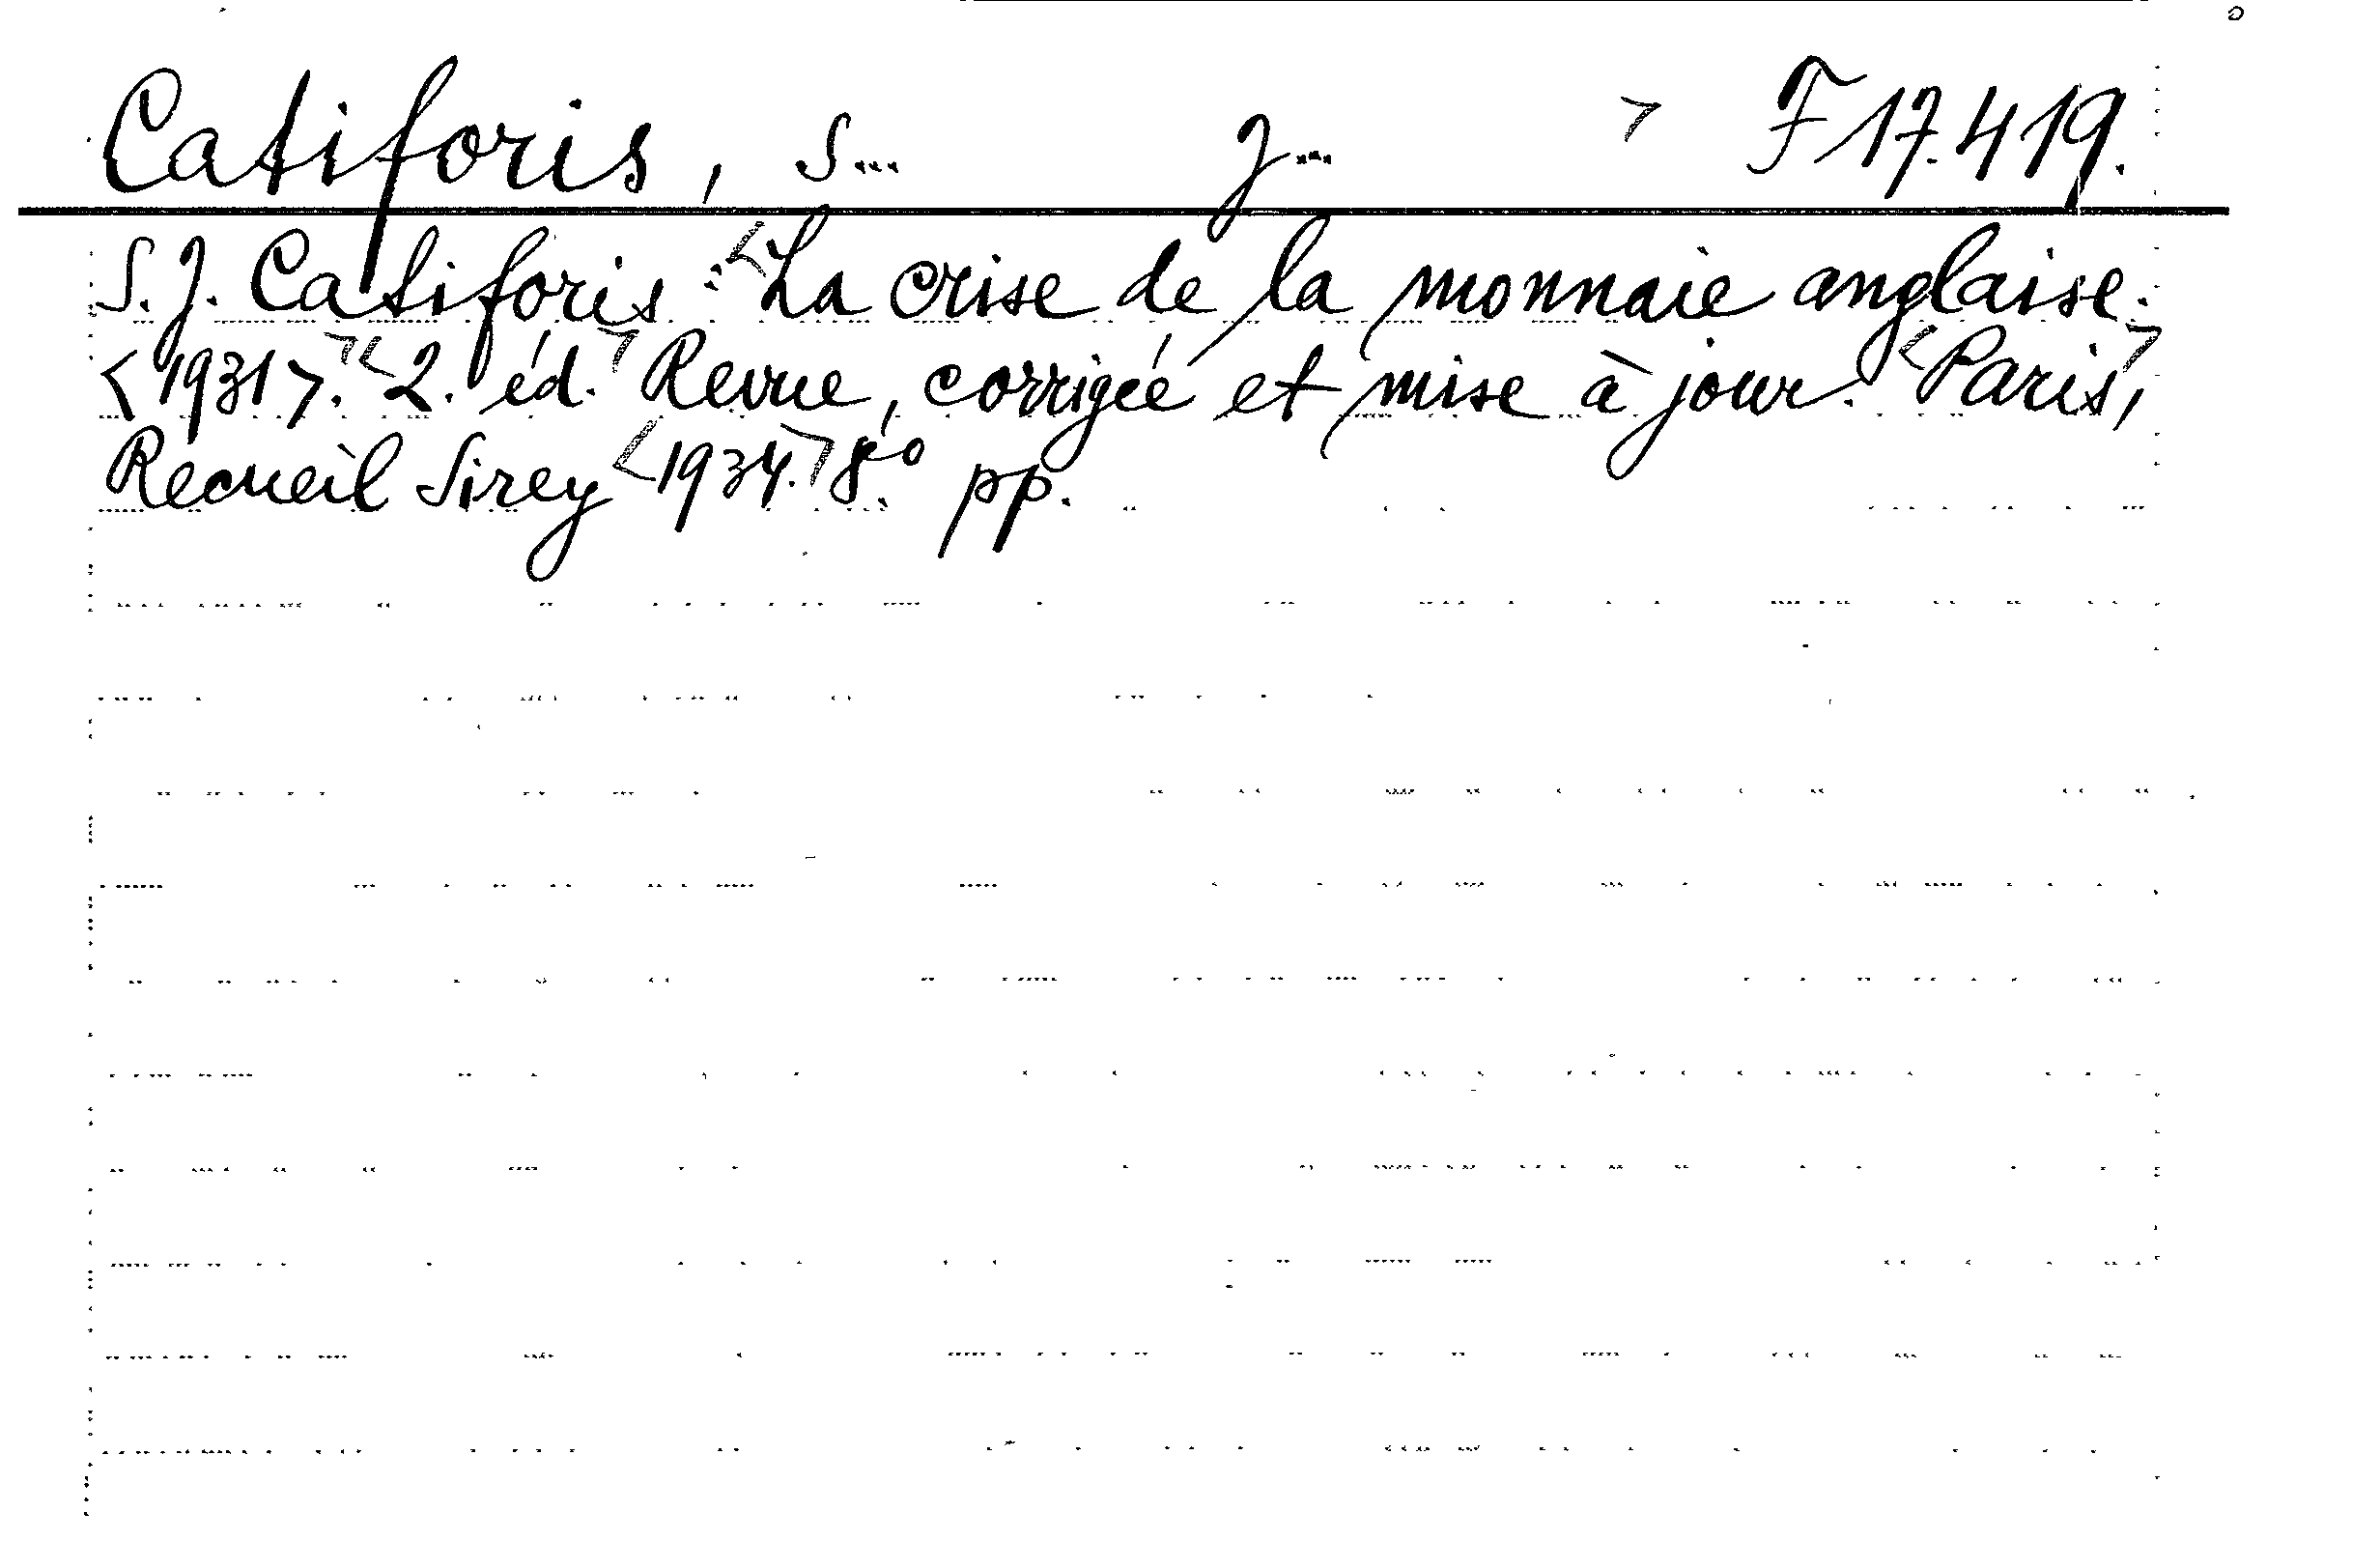 Catiforis, S... J... > F 17.419.
S. J. Catiforis : <La crise de la monnaie anglaise.
<1931>.> <2. éd.> Revue, corrigée et mise à jour. <Paris,>
Recueil Sirey <1934.> 8.° pp.